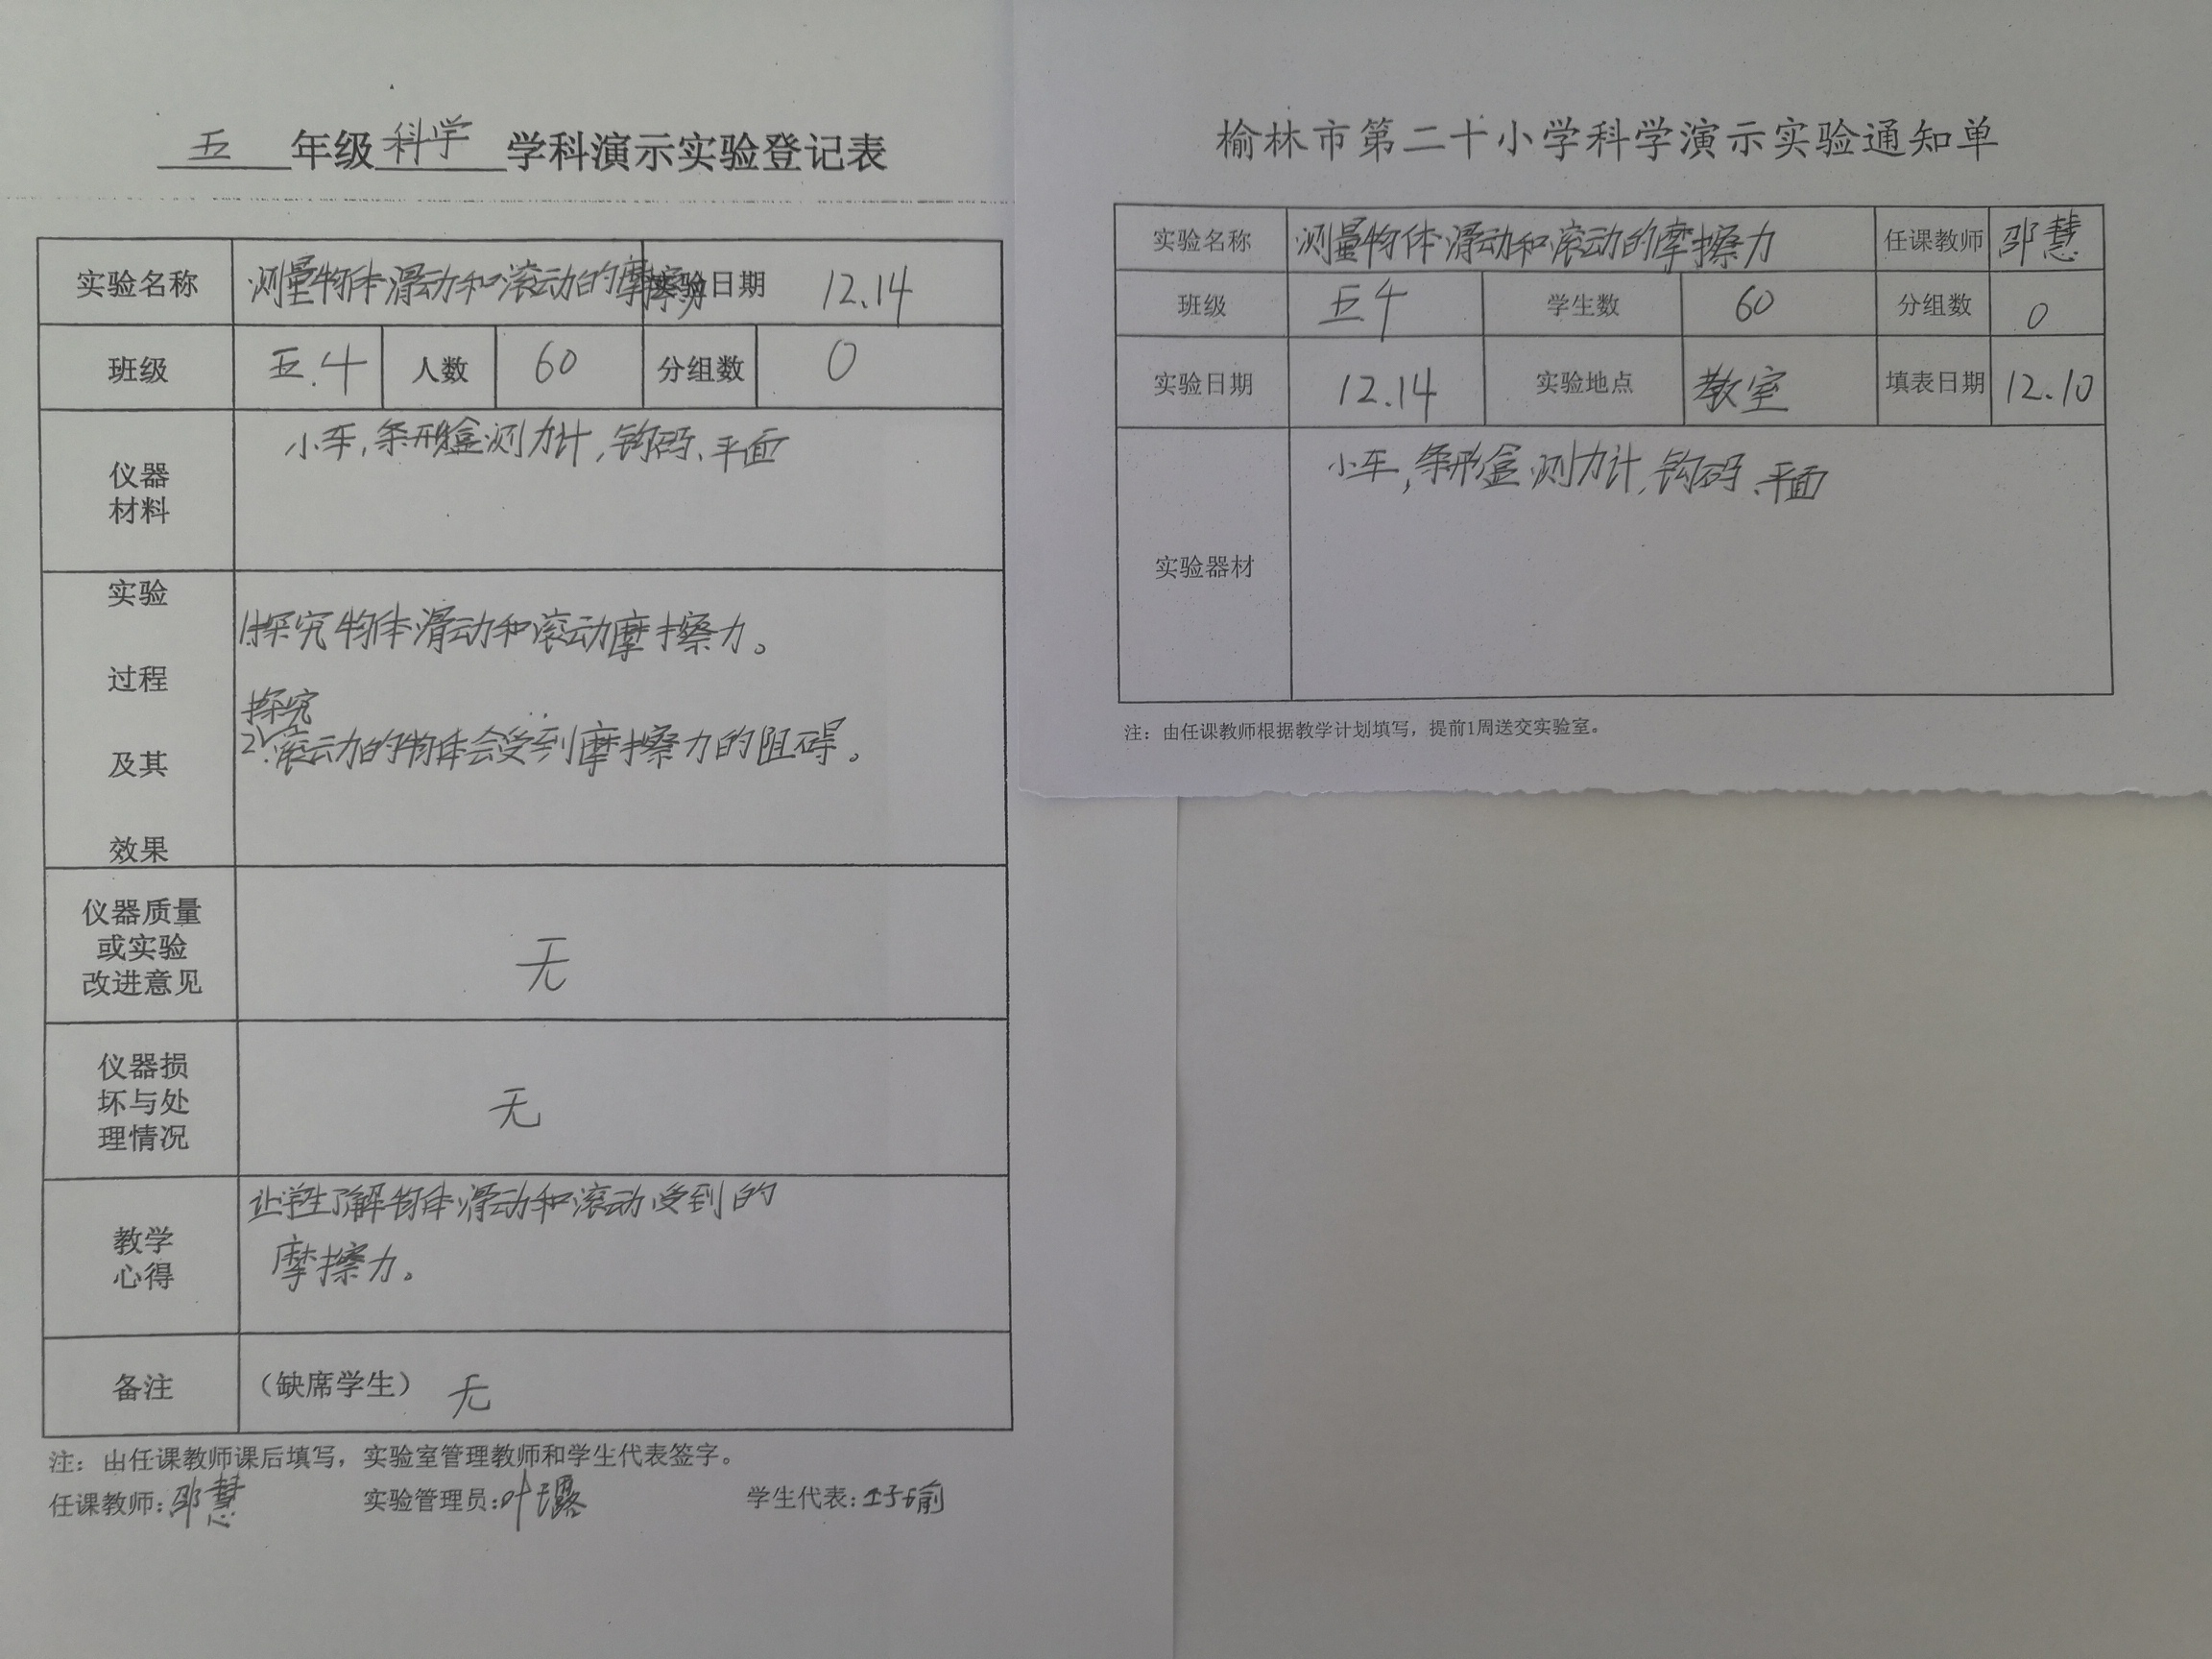 五年级科学学科演示实验登记表
实验名称 测量物体滑动和滚动的摩擦力 实验日期 12.14
班级 五.4 人数 60 分组数 0
仪器 材料 小车,条形盒测力计,钩码、平面
实验 过程 及其 效果
1.探究物体滑动和滚动摩擦力。
探究
2.滚动的物体会受到摩擦力的阻碍。
仪器质量
或实验
改进意见 无
仪器损
坏与处
理情况 无
教学 心得 让学生了解物体滑动和滚动受到的
摩擦力。
备注 (缺席学生) 无
注：由任课教师课后填写，实验室管理教师和学生代表签字。
任课教师:邵慧 实验管理员:叶璐 学生代表:
榆林市第二十小学科学演示实验通知单
实验名称 测量物体滑动和滚动的摩擦力 任课教师 邵慧
班级 五4 学生数 60 分组数 0
实验日期 12.14 实验地点 教室 填表日期 12.10
实验器材 小车,条形盒测力计,钩码、平面
注：由任课教师根据教学计划填写，提前1周送交实验室。